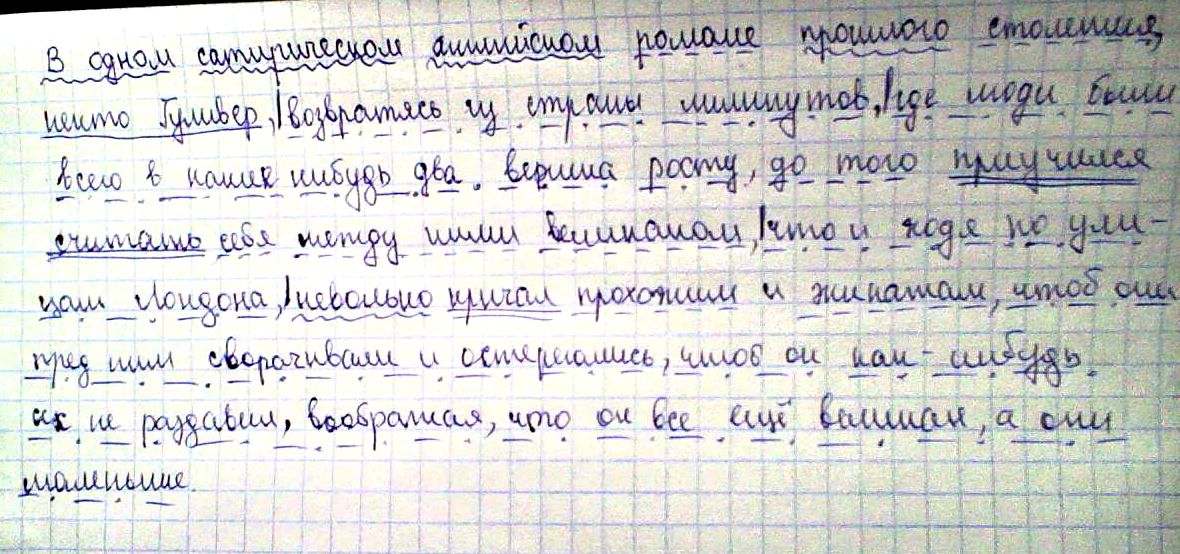 В одном сатирическом английском романе прошлого столетия,
некто Гуливер,|возвратясь из страны лилипутов,|где люди были
всего в каких нибудь два вершка росту, до того приучился
считать себя между ними великаном,|что и ходя по ули-
цам Лондона,|невольно кричал прохожим и экипажам, чтоб они
пред ним сворачивали и остерегались, чтоб он как-нибудь
их не раздавил, воображая, что он все ещё великан, а они
маленькие.